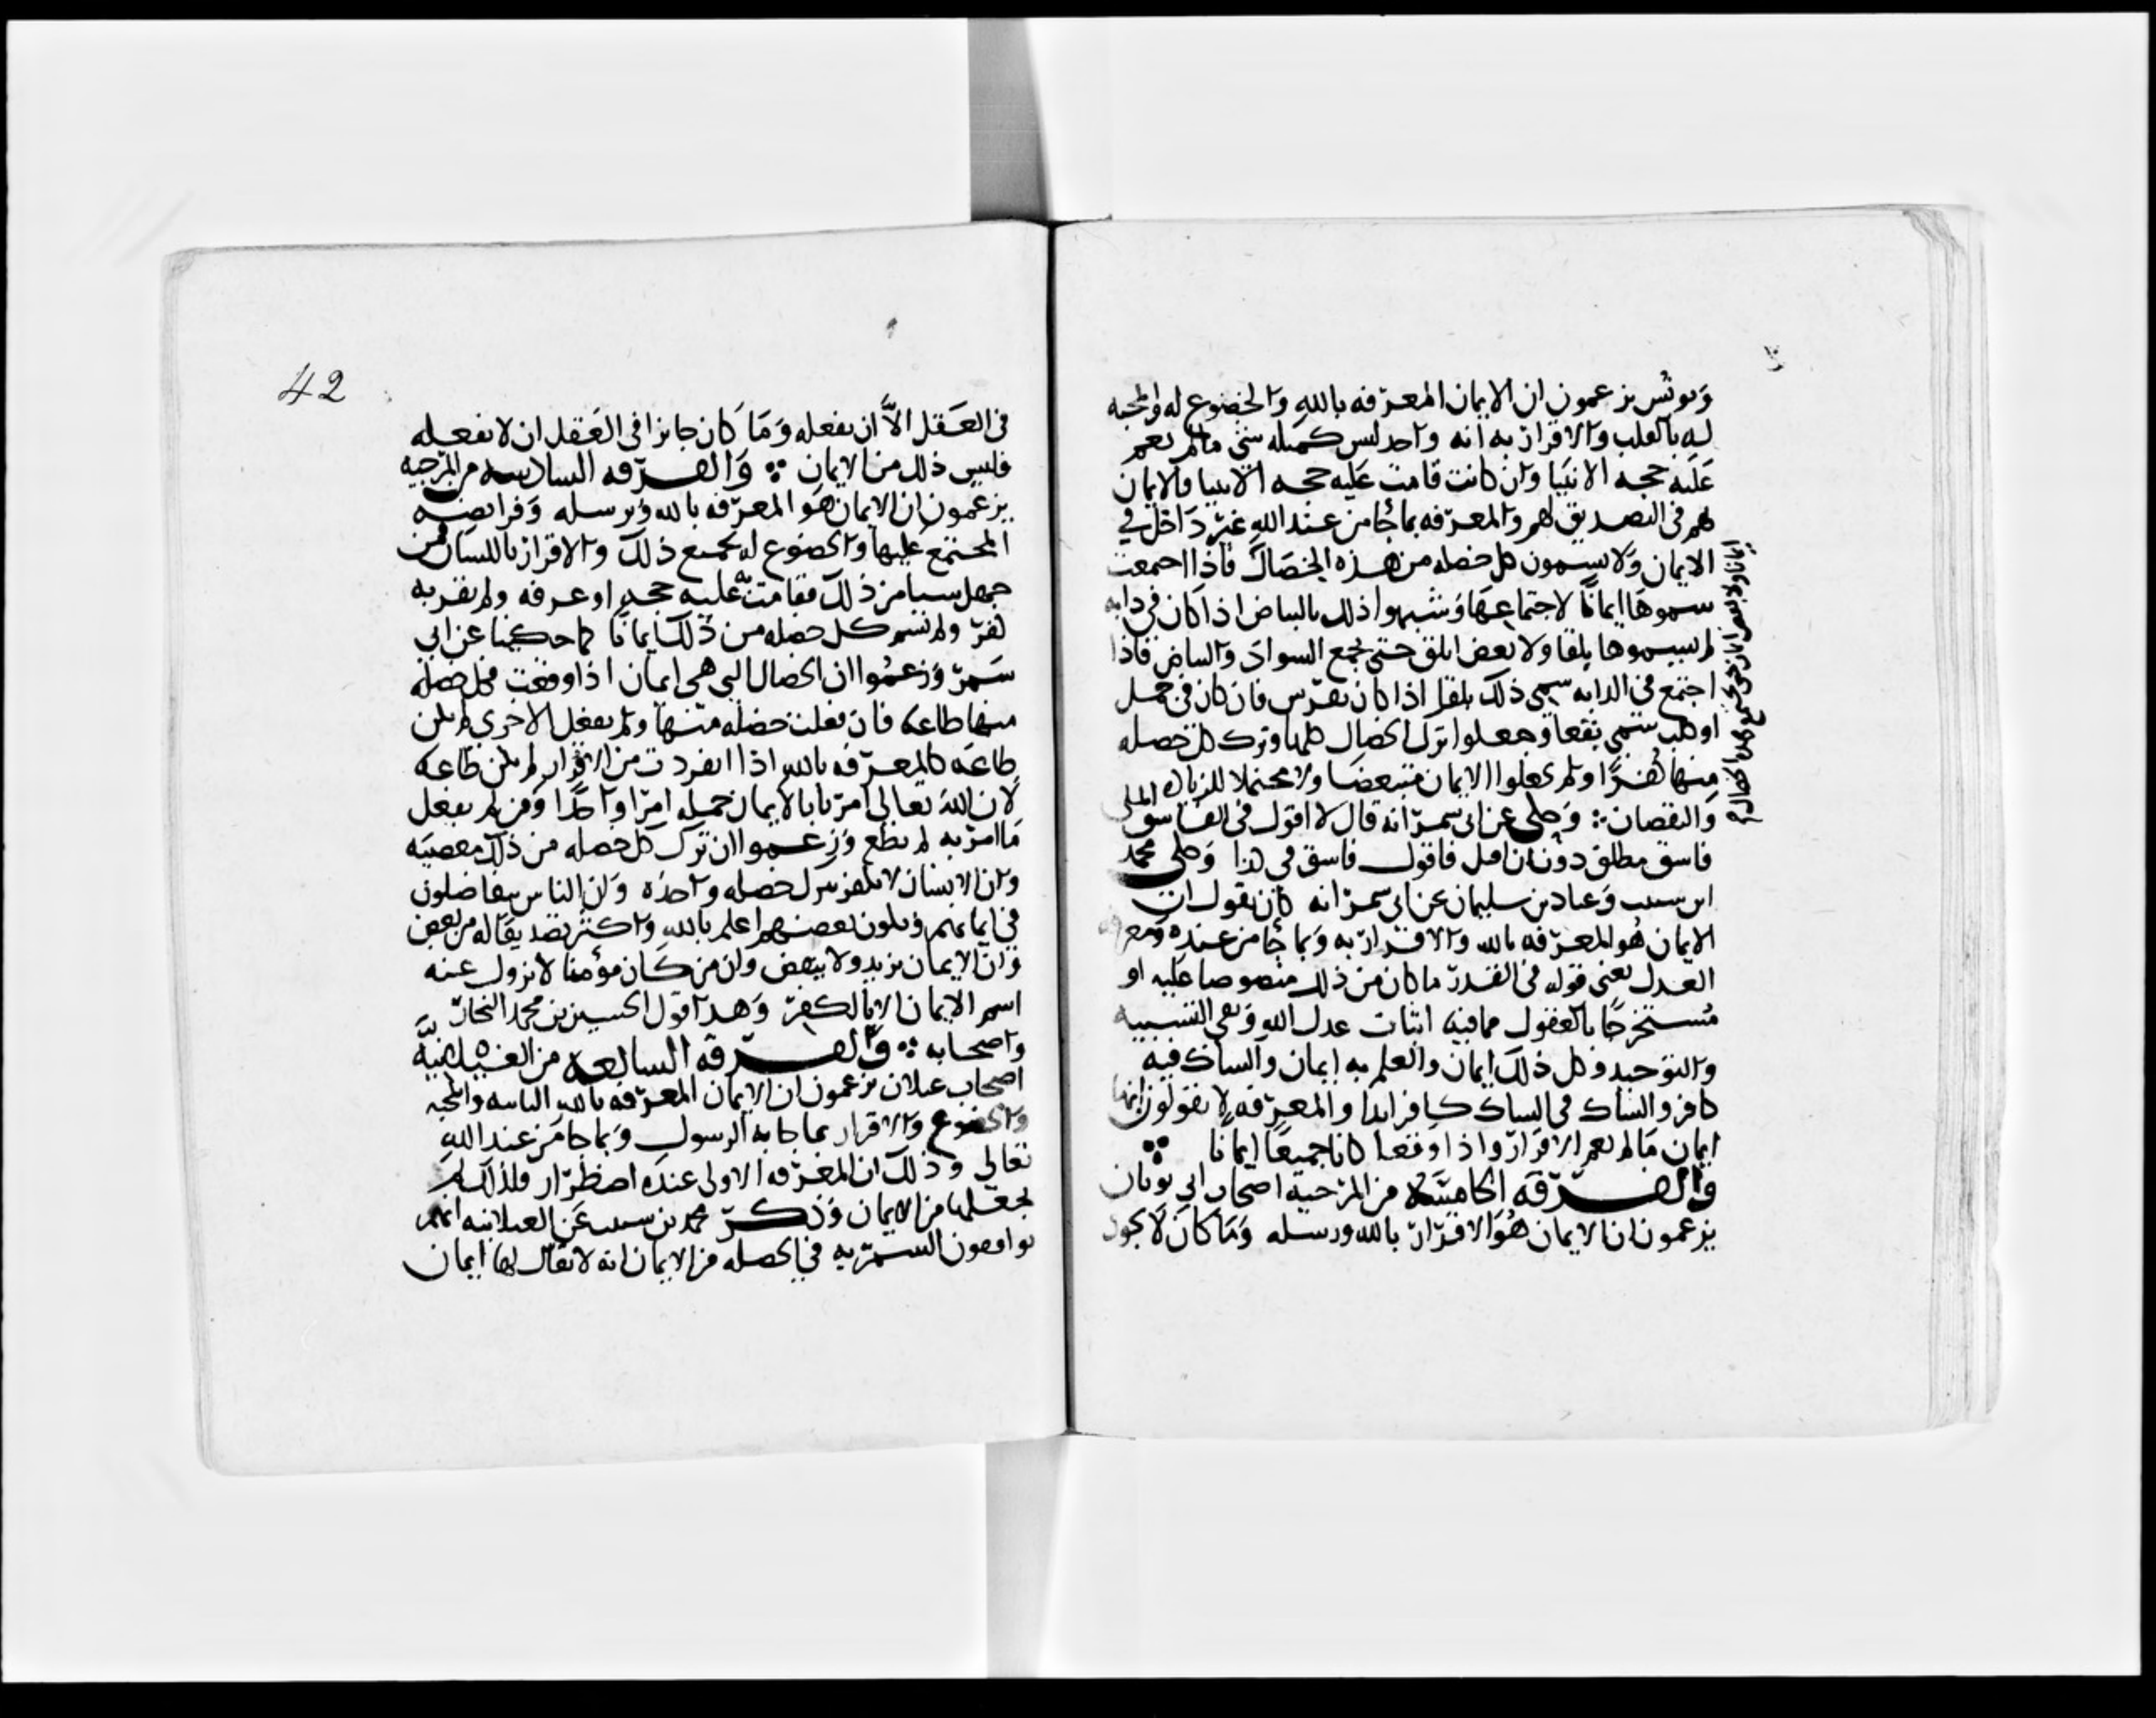 ويونس يزعمون ان الايمان المعرفه بالله والخضوع له والمحبه
له بالقلب والاقرار به انه واحد ليس كمثله شي ما لم تقم
عليه حجه الانبيا وان كانت قامت عليه حجه الانبيا فالايمان
بهم في التصديق لهم والمعرفه بما جا من عند الله غير داخل في
الايمان ولا يسمون كل خصله من هذه الخصال
فاذا اجتمعت
سموها ايمانا لاجتماعها وشبهوا ذلك بالبياض اذا كان في دابه
لم يسموها بلقا ولا بعض ابلق حتى يجمع السواد والبياض فاذا
اجتمع في الدابه سمي ذلك بلقا اذا كان بفرس فان كان في جمل
او كلب سمي بقعا وجعلوا ترك الخصال كلها وترك كل خصله
منها كفرا ولم يجعلوا الايمان متبعضا ولا محتملا للزياده
والنقصان وحكي عن ابي شمر انه قال لا اقول في الفاسق الملي
فاسق مطلق دون ان اقيد فاقول فاسق في كذا وحكى محمد
ابن شبيب وعباد بن سليمان عن ابي شمر انه كان يقول ان
الايمان هو المعرفه بالله والاقرار به وبما جا من عنده ومعرفه
العدل يعني قوله في القدر ما كان من ذلك منصوصا عليه او
مستخرجا بالعقول مما فيه اثبات عدل الله ونفي التشبيه
والتوحيد وكل ذلك ايمان والعلم به ايمان والشاك فيه
كافر والشاك في الشاك كافر ابدا والمعرفه لا يقولون انها
ايمان ما لم تضم الاقرار واذا وقعا كانا جميعا ايمانا
والفرقه الخامسه من المرجيه اصحاب ابي ثوبان
يزعمون ان الايمان هو الاقرار بالله ورسله وما كان لا يجوز
ايمانا ولا بعض ايمان حتى تجتمع هذه الخصال
42
في العقل الا ان يفعله وما كان جايزا في العقل ان لا يفعله
فليس ذلك من الايمان والفرقه السادسه من المرجيه
يزعمون ان الايمان هو المعرفه بالله وبرسله وفرايضه
المجتمع عليها والخضوع له بجميع ذلك والاقرار باللسان فمن
جهل شيا من ذلك فقامت به عليه حجه او عرفه ولم يقر به
كفر ولم تسم كل خصله من ذلك ايمانا كما حكينا عن ابي
شمر وزعموا ان الخصال التي هي ايمان اذا وقعت فكل خصله
منها طاعه فان فعلت خصله منها ولم تفعل الاخرى لم تكن
طاعه كالمعرفه بالله اذا انفردت من الاقرار لم تكن طاعه
لان الله تعالى امرنا بالايمان جمله امرا واحدا ومن لم يفعل
ما امر به لم يطع وزعموا ان ترك كل خصله من ذلك معصيه
وان الانسان لا يكفر بترك خصله واحده وان الناس يتفاضلون
في ايمانهم ويكون بعضهم اعلم بالله واكثر تصديقا له من بعض
وان الايمان يزيد ولا ينقص وان من كان مؤمنا لا يزول عنه
اسم الايمان الا بالكفر وهذا قول الحسين بن محمد النجار
واصحابه والفرقه السابعه من الغيلانيه
اصحاب غيلان يزعمون ان الايمان المعرفه بالله الثانيه والمحبه
والخضوع والاقرار بما جا به الرسول وبما جا من عند الله
تعالى وذلك ان المعرفه الاولى عنده اضطرار فلذلك لم
يجعلها من الايمان وذكر محمد بن شبيب عن الغيلانيه انهم
يوافقون الشمريه في الخصله من الايمان انه لا يقال لها ايمان